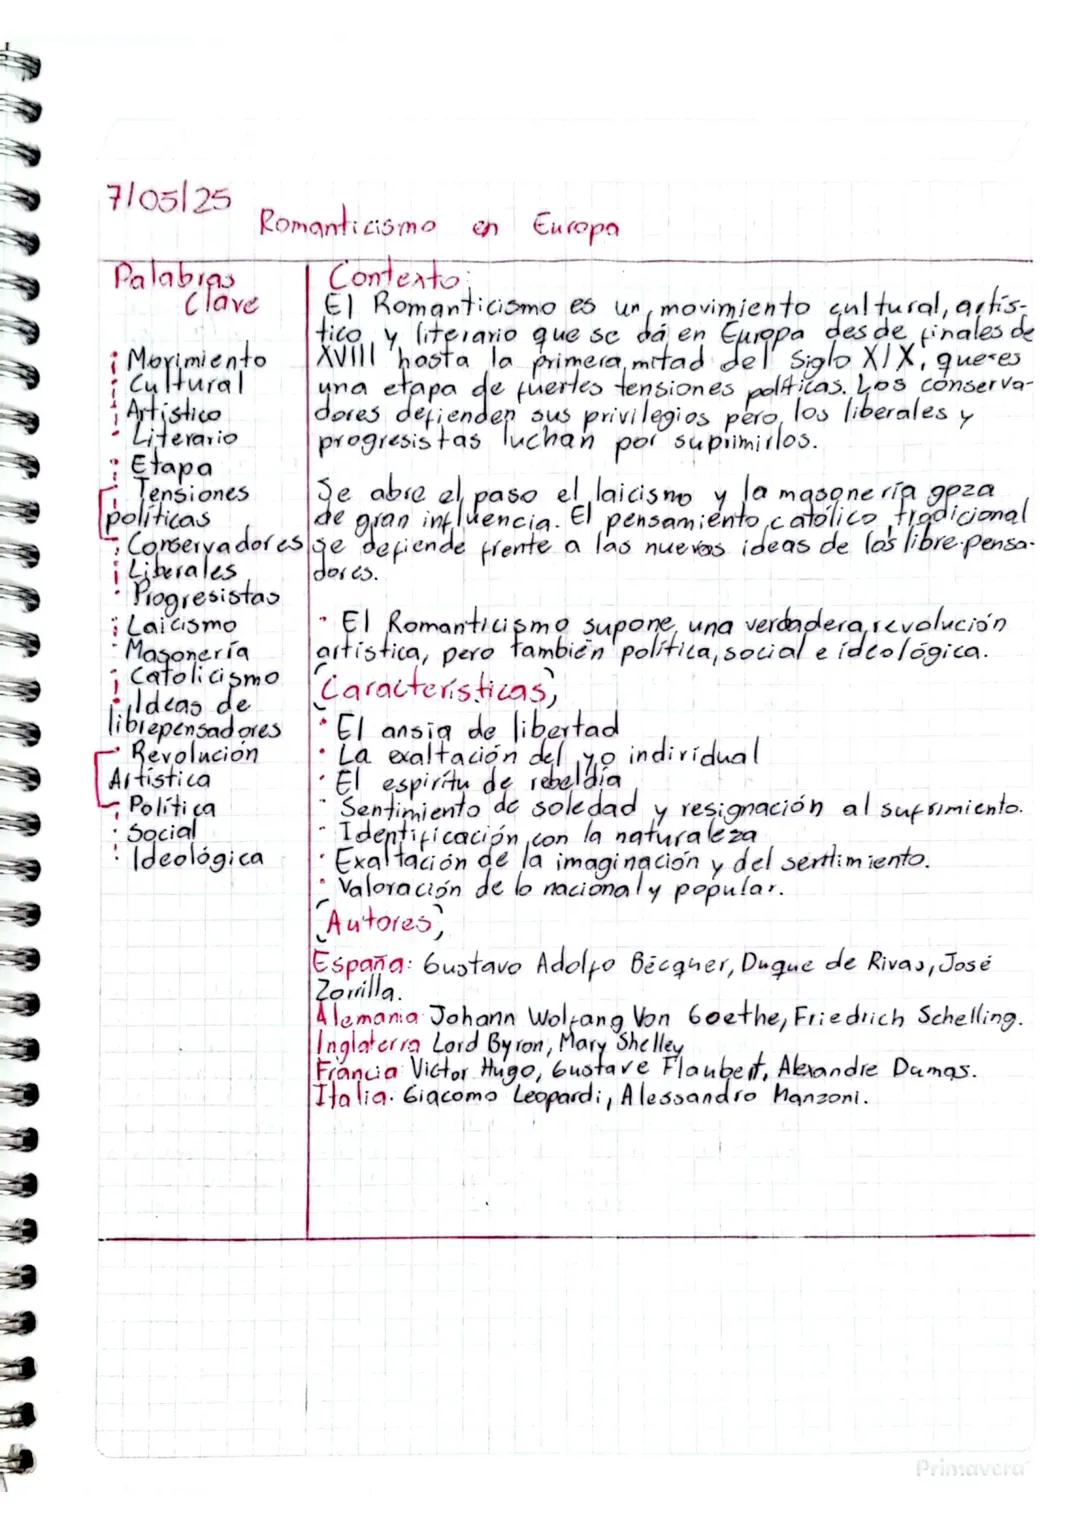 7/05/25
Romanticismo en Europa
Palabras
Clave
· Movimiento
· Cultural
· Artístico
· Literario
· Etapa
· Tensiones
políticas
· Conservadores
· Liberales
· Progresistas
· Laicismo
· Masonería
· Catolicismo
· Ideas de
librepensadores
· Revolución
Artística
· Política
· Social
· Ideológica
Contexto:
El Romanticismo es un movimiento cultural, artís-
tico y literario que se dá en Europa desde finales de
XVIII hasta la primera mitad del Siglo XIX, que es
una etapa de fuertes tensiones políticas. Los conserva-
dores defienden sus privilegios pero los liberales y
progresistas luchan por suprimirlos.
Se abre el paso el laicismo y la masonería goza
de gran influencia. El pensamiento católico tradicional
se defiende frente a las nuevas ideas de los libre-pensa-
dores.
· El Romanticismo supone una verdadera revolución
artística, pero también política, social e ideológica.
Características
· El ansia de libertad
· La exaltación del yo individual
· El espíritu de rebeldía
· Sentimiento de soledad y resignación al sufrimiento.
· Identificación con la naturaleza
· Exaltación de la imaginación y del sentimiento.
· Valoración de lo nacional y popular.
Autores
España: Gustavo Adolfo Bécquer, Duque de Rivas, José
Zorrilla.
Alemania Johann Wolfang Von Goethe, Friedrich Schelling.
Inglaterra Lord Byron, Mary Shelley
Francia Victor Hugo, Gustave Flaubert, Alexandre Dumas.
Italia. Giacomo Leopardi, Alessandro Manzoni.
Primavera